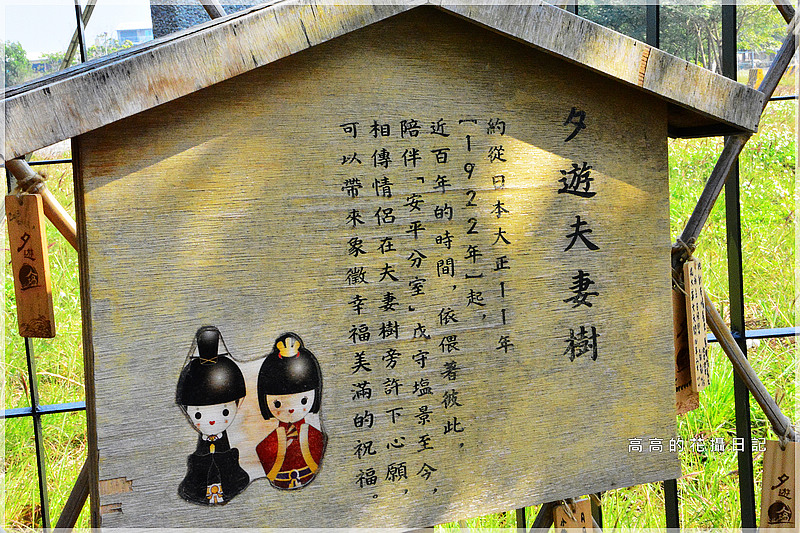 夕遊夫妻樹
約從日本大正11年
[1922年]起，
近百年的時間，依偎著彼此，
陪伴「安平分室」戍守塩景至今，
相傳情侶在夫妻樹旁許下心願，
可以帶來象徵幸福美滿的祝福。
夕遊
高高的花攝日記
夕遊